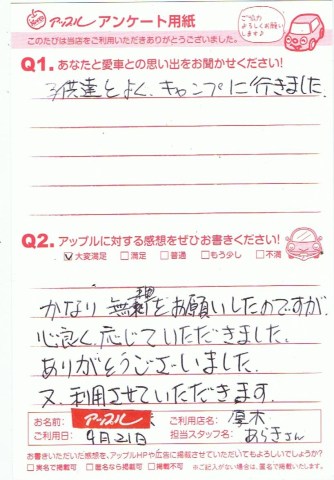 アップル アンケート用紙
ご協力よろしくお願いします♪
このたびは当店をご利用いただきありがとうございました。
Q1. あなたと愛車との思い出をお聞かせください!
子供達とよく、キャンプに行きました。
Q2. アップルに対する感想をぜひお書きください!
☑大変満足 □満足 □普通 □もう少し □不満
かなり無理をお願いしたのですが、
心良く、応じていただきました。
ありがとうございました。
又、利用させていただきます。
お名前: アップル 様 ご利用店名: 厚木
ご利用日: 9月21日 担当スタッフ名: あらきさん
お書きいただいた感想を、アップルHPや広告に掲載させていただいてもよろしいでしょうか?
□実名で掲載可 □匿名なら掲載可 □掲載不可 ※ご記入がない場合は、匿名で掲載いたします。